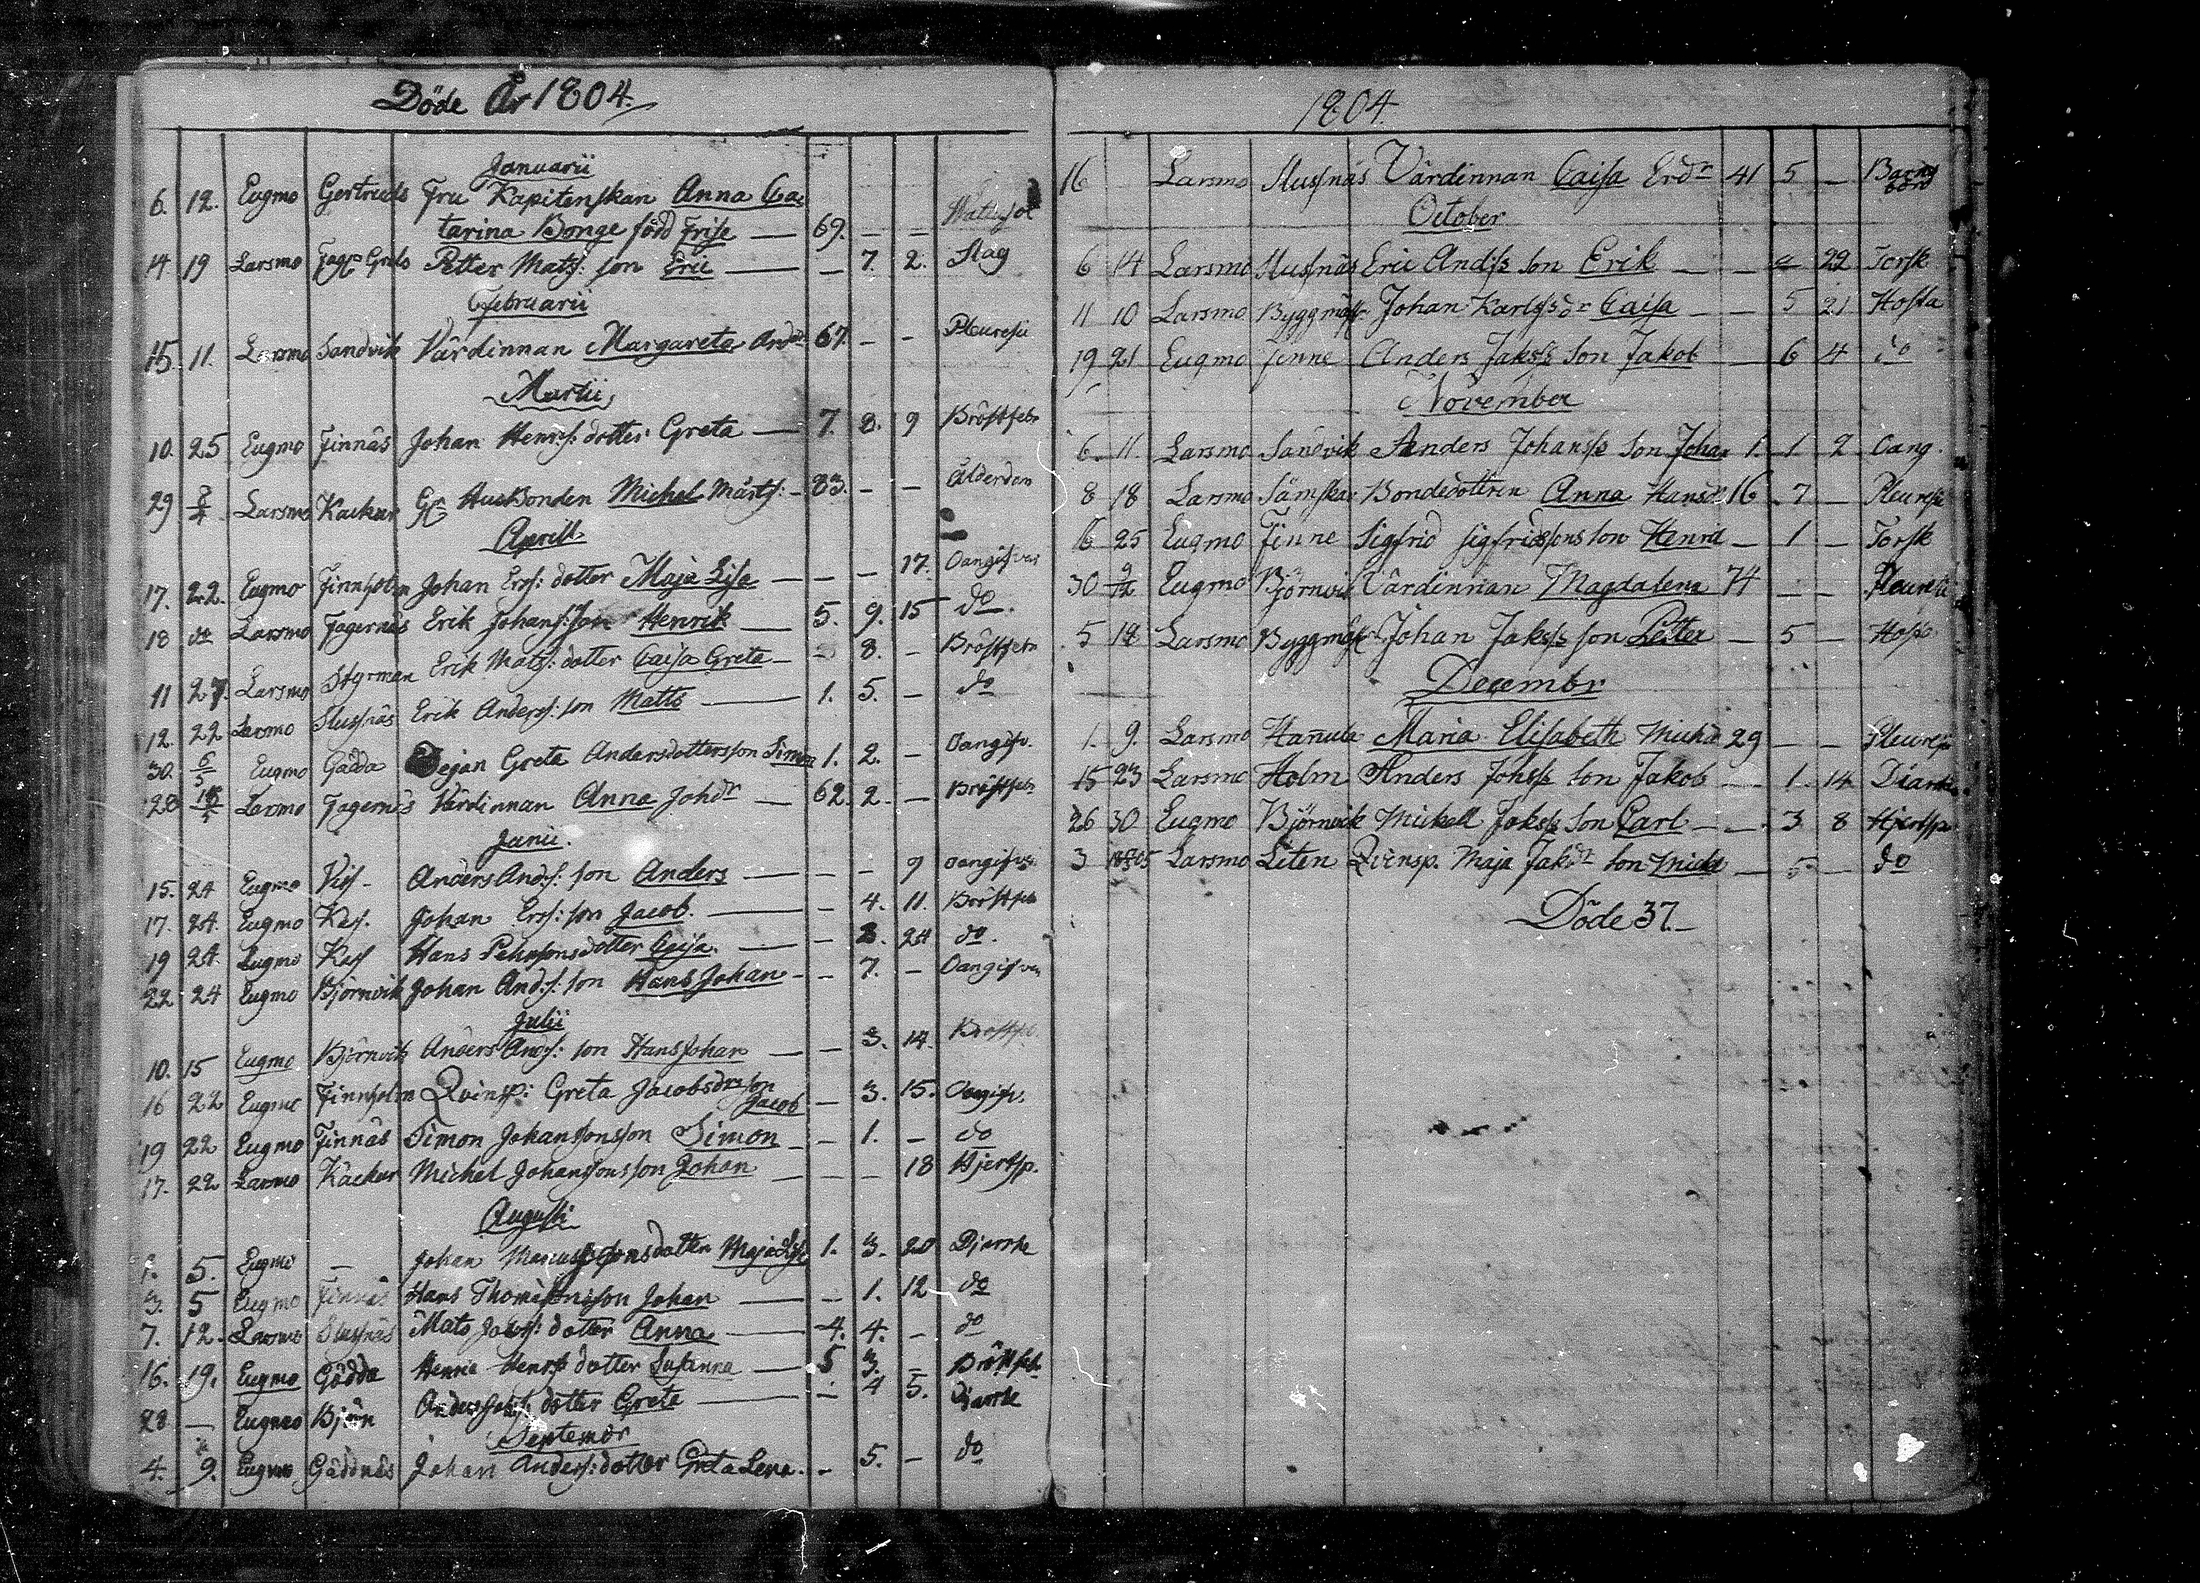 Döde År 1804.
Januarii
6. 12. Eugmo Gertruds Fru Kapitenskan Anna Ca
tarina Bonge född Frise — 69. — —
14 19 Larsmo Petter Mats: son Eric — — 7. 2. Slag
Februarii
15 11. Larsmo Sandvik Värdinnan Margareta Andr 67. — — Pleuresie
Martii
10. 25 Eugmo Finnäs Johan Henrs: dotter Greta — 7. 8. 9 Bröstfebr
29 2/4 Larsmo Kackur Husbonden Michel Mårts: — 83. — — Ålderdom
Aprill
17. 22. Eugmo Finnholm Johan Ers: dotter Maja Lisa — — — 17. Oangifven
18 do Larsmo Fagernäs Erik Johans: son Henrik — 5. 9. 15 do.
11 27. Larsmo Styrman Erik Mats: dotter Caisa Greta — — 8. — Bröstfebr
12. 22 Larsmo Slussnäs Erik Anders: son Matts — 1. 5. — do
30. 6/5 Eugmo Gädda Pejan Greta Andersdottersson Simon 1. 2. — Oangifv.
28 Larsmo Fagernäs Värdinnan Anna Johdr — 62. 2. — Bröstfebr
Junii.
15. 24 Eugmo Anders And.s: son Anders — — — 9 oangifven
17. 24. Eugmo Kas. Johan Ers: son Jacob. — — 4. 11. Bröstfeb
19 24. Eugmo Kass Hans Pehrssons dotter Caisa. — — 8. 24 do.
22 24 Eugmo Björnvik Johan And.s: son Hans Johan — — 7. — Oangifven
Julii
10. 15 Eugmo Björnvik Anders Ands: son Hans Johan — — 3. 14. Bröstfe
16 22 Eugmo Finnholm Qvinsp: Greta Jacobsdrs son
Jacob — 3. 15. Oangifv.
19 22 Eugmo Finnäs Simon Johanssonsson Simon — — 1. — do
17. 22 Larsmo Kackur Michel Johanssonsson Johan — — — 18 Hjertsp.
Augusti
1. 5. Eugmo — Johan dotter Maja Lisa 1. 3. 20 Djarrhe
3. 5 Eugmo Finnäs Hans Thomassonsson Johan — — 1. 12 do
7. 12. Larsmo Slussnäs Mats Jakobs: dotter Anna — 4. 4. — do
16. 19. Eugmo Gädda Henric Henrss dotter Susanna — 5 3. — Bröstfeb.
28 — Eugmo Björn Anders Jakobs: dotter Greta — — 4 5. Djarrhe
Septembr
4. 9. Eugmo Gäddnäs Johan Anders: dotter Greta Lena. — 5. — do
1804.
16 Larsmo Slussnäs Värdinnan Caisa Erdr 41 5 — Barns
börd
October
6 14 Larsmo Slussnäs Eric Andss son Erik — — 22 Torsk
11 10 Larsmo Byggmäst Johan Karlss dr Caisa — — 5 21 Hosta
19 21 Eugmo Finne Anders Jakss son Jakob — 6 4 do
November
6. 11. Larsmo Sandvik Anders Johanss son Johan 1. 1 2 Oang.
8 18 Larsmo Sämskar Bondedottren Anna Hansdr 16 7 — Pleuresie
16 25 Eugmo Finne Sigfrid Sigfridssons son Henric — 1 — Torsk
30 9/12 Eugmo Björnvik Värdinnan Magdalena 74 — — Pleuresie
5 18 Larsmo Byggmäst Johan Jakss son Petter — 5 — Host
Decembr
1. 9. Larsmo Hannula Maria Elisabeth Michd 29 — — Pleuresi
15 23 Larsmo Holm Anders Johss son Jakob — 1 14 Diarrhe
26 30 Eugmo Björnvik Mickell Jakss son Carl — — 3 8 Hjertsp
3 1805 Larsmo Liten Qvinsp. Maja Jakdr son Mick — 5 — do
Döde 37.—